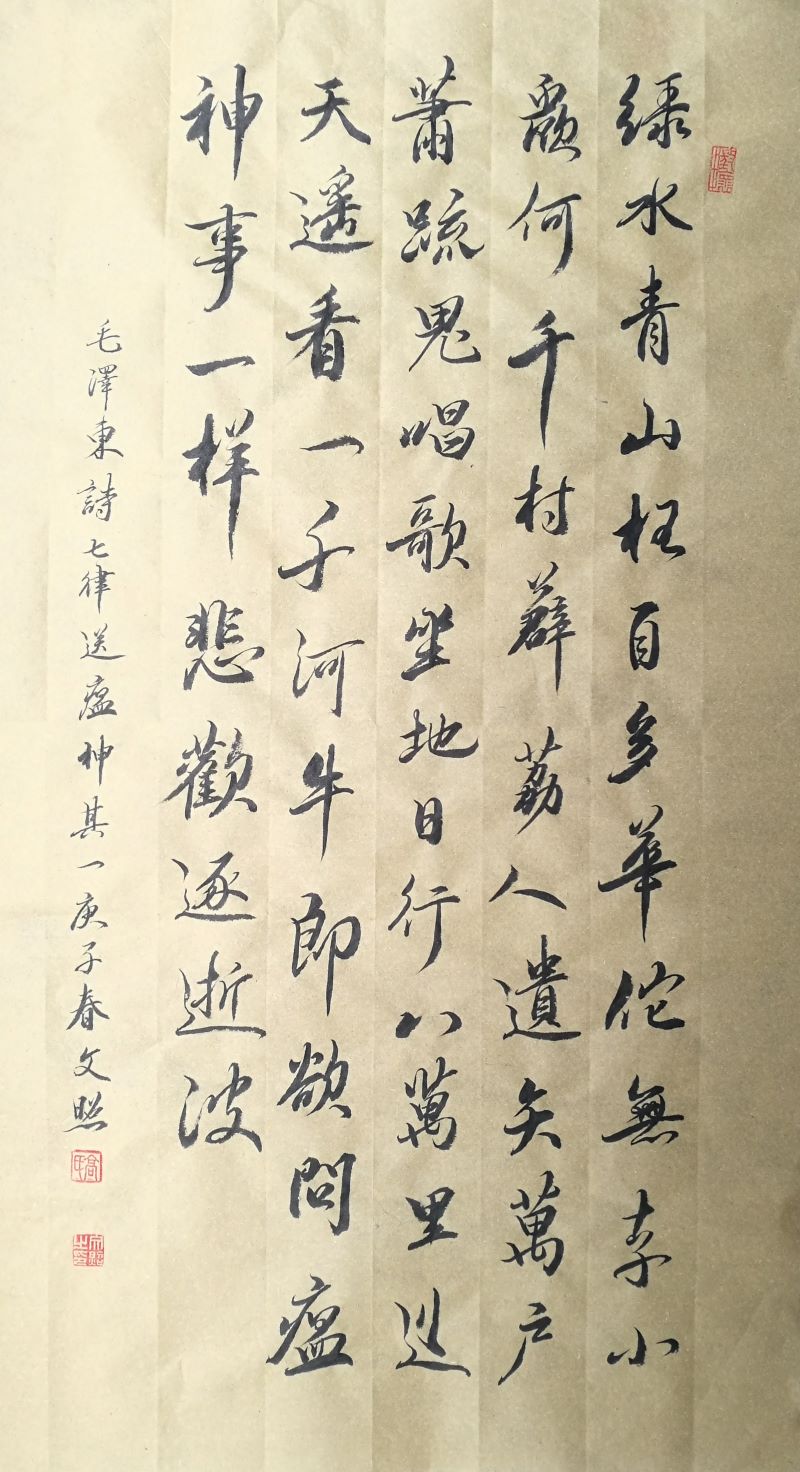 绿水青山枉自多華佗無奈小
蟲何千村薜荔人遺矢萬户
蕭疏鬼唱歌坐地日行八萬里巡
天遥看一千河牛郎欲問瘟
神事一样悲歡逐逝波
毛澤東詩七律送瘟神其一庚子春文照